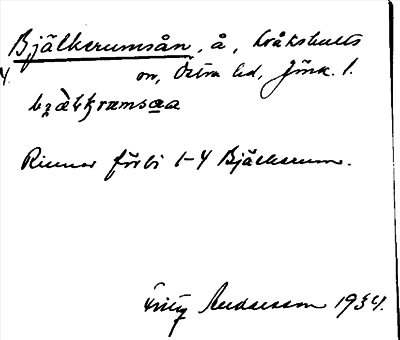 Bjälkerumsån, å, Kråkshults
sn, Östra hd, Jönk. l.
Rinner förbi 1-4 Bjälkerum.
Fritz Andersson 1934.